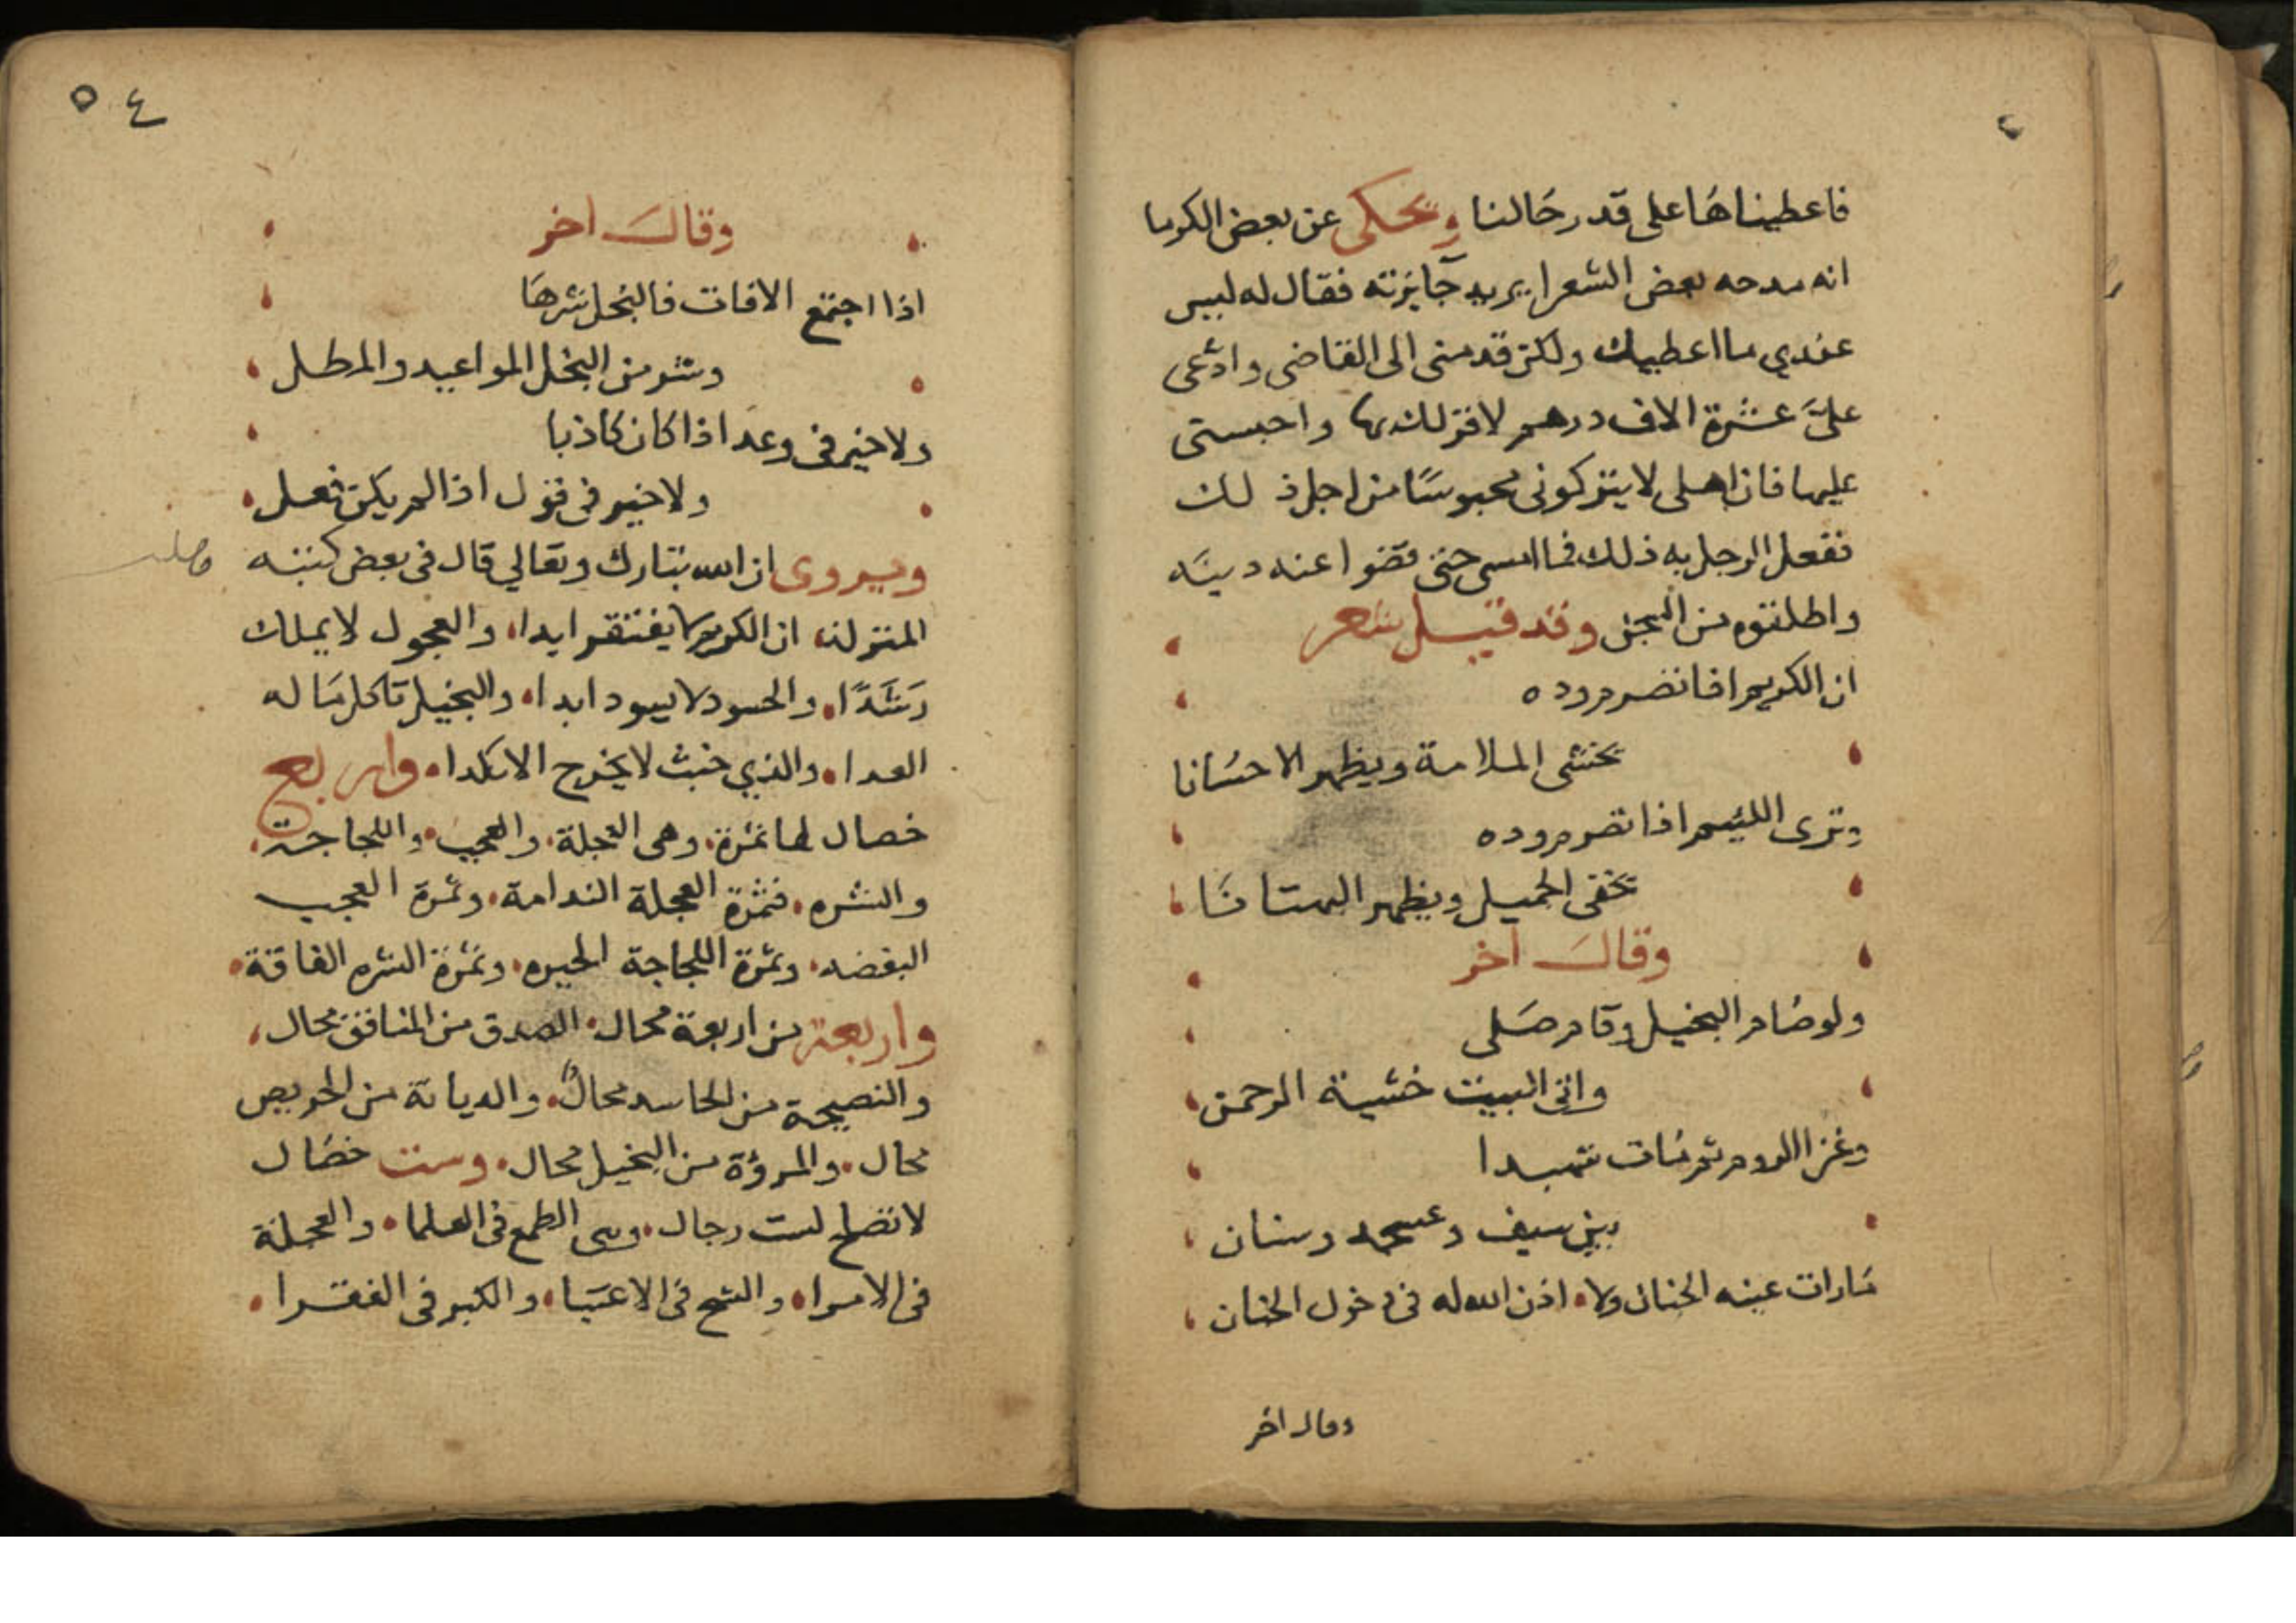 فاعطيناها على قدر حالنا ويحكى عن بعض الكرما
انه مدحه بعض الشعرا يريد جايزته فقال له ليس
عندي ما اعطيك ولكن قدمني الى القاضي وادّعى
علىَّ عشرة الاف درهم لاقر لك بها واحبستى
عليها فان اهلى لا يتركونى محبوسًا من اجل ذلك
ففعل الرجل به ذلك فما امسى حتى قضوا عنه دينه
واطلقوه من السجن وقد قيل شعر
ان الكريم اذا تضرم وده
يخشى الملامة ويظهر الاحسانا
وترى اللئيم اذا تضرم وده
يخفى الجميل ويظهر البهتانا
وقال اخر
ولو صام البخيل وقام صلى
واتى البيت خشية الرحمن
وغزا الروم ثم مات شهيدا
بين سيف وسنان
مارات عينه الجنان ولا اذن الله له فى دخول الجنان
وقال اخر
٥٤
وقال اخر
اذا اجتمع الافات فالبخل شرها
وشر من البخل المواعيد والمطل
ولا خير فى وعد اذا كان كاذبا
ولا خير فى قول اذا لم يكن فعل
ويروى ان الله تبارك وتعالي قال فى بعض كتبه
المنزلة ان الكريم لا يفتقر ابدا والعجول لا يملك
رشدًا والحسود لا يسود ابدا والبخيل تاكل ماله
العدا والذي خبث لا يخرج الا نكدا واربع
خصال لها ثمرة وهى العجلة والعجب واللجاجة
والشره فثمرة العجلة الندامة وثمرة العجب
البغضه وثمرة اللجاجة الحيره وثمرة الشره الفاقة
واربعة من اربعة محال الصدق من المنافق محال
والنصيحة من الحاسد محالٌ والديانة من الحريص
محال والمرؤة من البخيل محال وست خصال
لا تصلح لست رجال وهى الطمع فى العلما والعجلة
فى الامرا والشح فى الاغنيا والكبر فى الفقرا